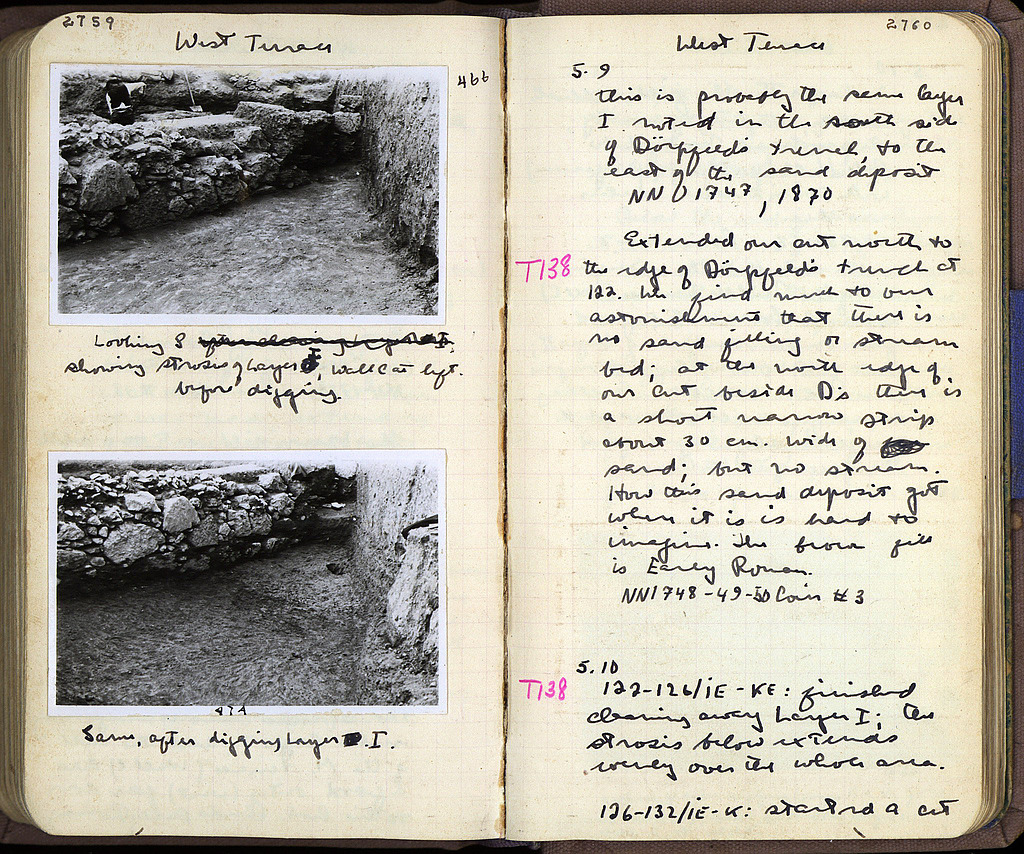 2759
West Terrace
466
Looking S
showing strosis of Layer I, Wall C at left.
before digging.
474
Same, after digging Layer I.
2760
West Terrace
5.9
this is probably the same layer
I noted in the south side
of Dörpfeld's trench, to the
east of the sand deposit
NN 1747, 1870
Extended our cut north to
T138
the edge of Dörpfeld's trench at
122. We find much to our
astonishment that there is
no sand filling or stream
bed; at the north edge of
our cut beside D's there is
a short narrow strip
about 30 cm. wide of
sand; but no stream.
How this sand deposit got
where it is is hard to
imagine. The brown fill
is Early Roman.
NN1748-49-50 Coin #3
5.10
T138
122-126/iE-KE: finished
cleaning away Layer I; the
strosis below extends
evenly over the whole area.
126-132/iE-K: started a cut